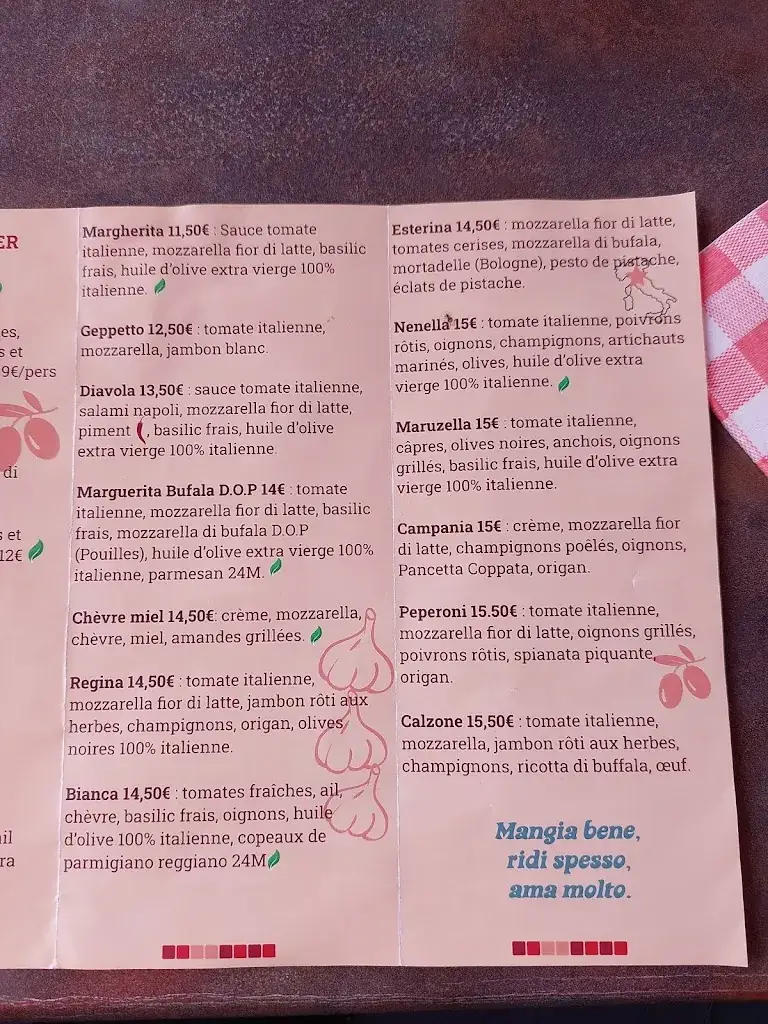 ER
es,
s et
9€/pers
di
s et
12€
ail
ra
Margherita 11,50€ : Sauce tomate
italienne, mozzarella fior di latte, basilic
frais, huile d'olive extra vierge 100%
italienne.
Geppetto 12,50€ : tomate italienne,
mozzarella, jambon blanc.
Diavola 13,50€ : sauce tomate italienne,
salami napoli, mozzarella fior di latte,
piment , basilic frais, huile d'olive
extra vierge 100% italienne.
Marguerita Bufala D.O.P 14€ : tomate
italienne, mozzarella fior di latte, basilic
frais, mozzarella di bufala D.O.P
(Pouilles), huile d'olive extra vierge 100%
italienne, parmesan 24M.
Chèvre miel 14,50€: crème, mozzarella,
chèvre, miel, amandes grillées.
Regina 14,50€ : tomate italienne,
mozzarella fior di latte, jambon rôti aux
herbes, champignons, origan, olives
noires 100% italienne.
Bianca 14,50€ : tomates fraîches, ail,
chèvre, basilic frais, oignons, huile
d'olive 100% italienne, copeaux de
parmigiano reggiano 24M
Esterina 14,50€ : mozzarella fior di latte,
tomates cerises, mozzarella di bufala,
mortadelle (Bologne), pesto de pistache,
éclats de pistache.
Nenella 15€ : tomate italienne, poivrons
rôtis, oignons, champignons, artichauts
marinés, olives, huile d'olive extra
vierge 100% italienne.
Maruzella 15€ : tomate italienne,
câpres, olives noires, anchois, oignons
grillés, basilic frais, huile d'olive extra
vierge 100% italienne.
Campania 15€ : crème, mozzarella fior
di latte, champignons poêlés, oignons,
Pancetta Coppata, origan.
Peperoni 15.50€ : tomate italienne,
mozzarella fior di latte, oignons grillés,
poivrons rôtis, spianata piquante,
origan.
Calzone 15,50€ : tomate italienne,
mozzarella, jambon rôti aux herbes,
champignons, ricotta di buffala, œuf.
Mangia bene,
ridi spesso,
ama molto.